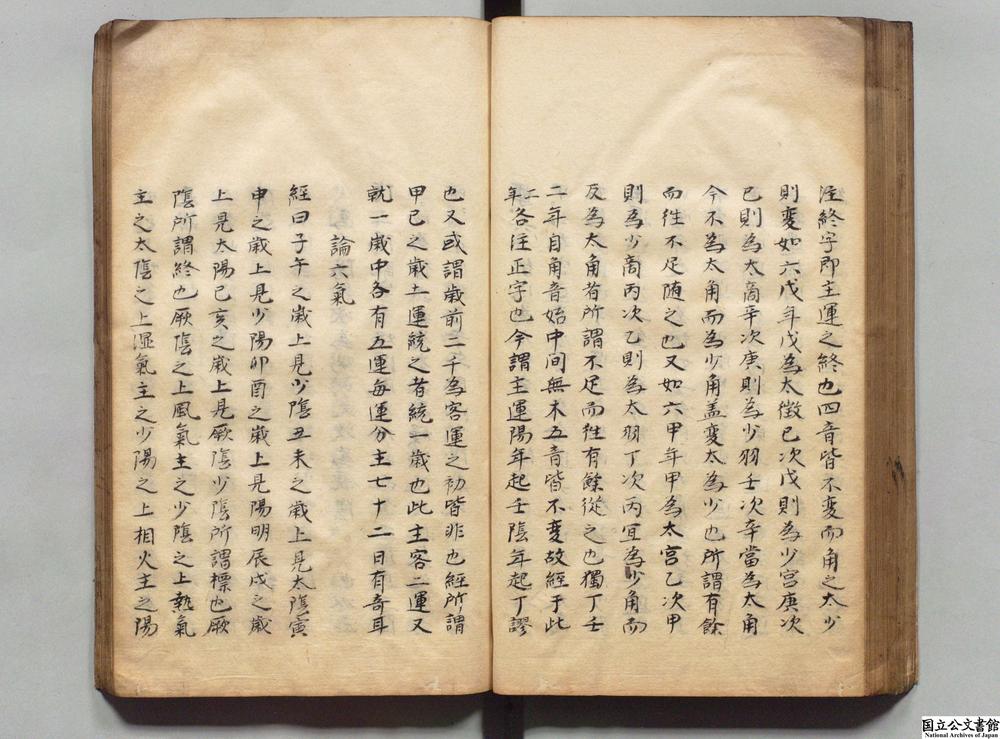 注終字即主運之終也四音皆不変而角之太少
則変如六戊年戊為太徴已次戊則為少宮庚次
已則為太商辛次庚則為少羽壬次辛當為太角
今不為太角而為少角盖変太為少也所謂有餘
而徃不足随之也又如六甲年甲為太宮乙次甲
則為少商丙次乙則為太羽丁次丙宜為少角而
反為太角者所謂不足而徃有餘從之也獨丁壬
二年自角音始中间無木五音皆不变故經于此
二年各注正字也今謂主運陽年起壬陰年起丁謬
也又或謂歳前二千為客運之初皆非也經所謂
甲已之歳土運統之者統一歳也此主客二運又
就一歳中各有五運每運分主七十二日有奇耳
論六氣
經曰子午之歳上見少陰丑未之歳上見太陰寅
申之歳上見少陽卯酉之歳上見陽明辰戌之歳
上見太陽已亥之歳上見厥陰少陰所謂標也厥
陰所謂終也厥陰之上風氣主之少陰之上熱氣
主之太陰之上湿氣主之少陽之上相火主之陽
国立公文書館
National Archives of Japan